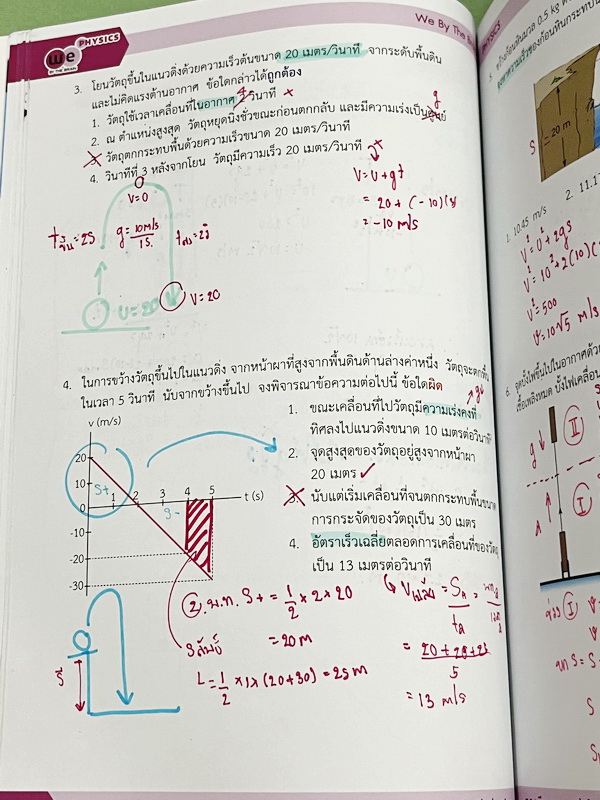 We By The
PHYSICS
we
BY THE BRAIN
3. โยนวัตถุขึ้นในแนวดิ่งด้วยความเร็วต้นขนาด 20 เมตร/วินาที จากระดับพื้นดิน
และไม่คิดแรงต้านอากาศ ข้อใดกล่าวได้ถูกต้อง
1. วัตถุใช้เวลาเคลื่อนที่ในอากาศ 2 วินาที ×
4
2. ณ ตำแหน่งสูงสุด วัตถุหยุดนิ่งชั่วขณะก่อนตกกลับ และมีความเร่งเป็นศูนย์
g
3. วัตถุตกกระทบพื้นด้วยความเร็วขนาด 20 เมตร/วินาที
4. วินาทีที่ 3 หลังจากโยน วัตถุมีความเร็ว 20 เมตร/วินาที
V=0
V = U + gt
= 20 + (-10)(3
= -10 m/s
tขึ้น = 2s
g = 10m/s
1s.
U = 20
V = 20
4. ในการขว้างวัตถุขึ้นไปในแนวดิ่ง จากหน้าผาที่สูงจากพื้นดินด้านล่างค่าหนึ่ง วัตถุจะตกพื้น
ในเวลา 5 วินาที นับจากขว้างขึ้นไป จงพิจารณาข้อความต่อไปนี้ ข้อใดผิด
1. ขณะเคลื่อนที่ไปวัตถุมีความเร่งคงที่
ทิศลงไปแนวดิ่งขนาด 10 เมตรต่อวินาที
2. จุดสูงสุดของวัตถุอยู่สูงจากหน้าผา
20 เมตร ✓
3. นับแต่เริ่มเคลื่อนที่จนตกกระทบพื้นขนาด
การกระจัดของวัตถุเป็น 30 เมตร
4. อัตราเร็วเฉลี่ยตลอดการเคลื่อนที่ของวัตถุ
เป็น 13 เมตรต่อวินาที
v (m/s)
20
10
0
-10
-20
-30
1 2 3 4 5 t (s)
S+
S-
② พ.ท. S+ = 1/2 × 2 × 20
= 20 m
L = 1/2 × 1 × (20+30) = 25 m
5
= 13 m/s
- 20 m
S
1. 10.45 m/s
2. 11.1
V² = U² + 2gS
V² = 10² + 2(10)(
V² = 500
V = 10√5 m/s
6.
g
II
I